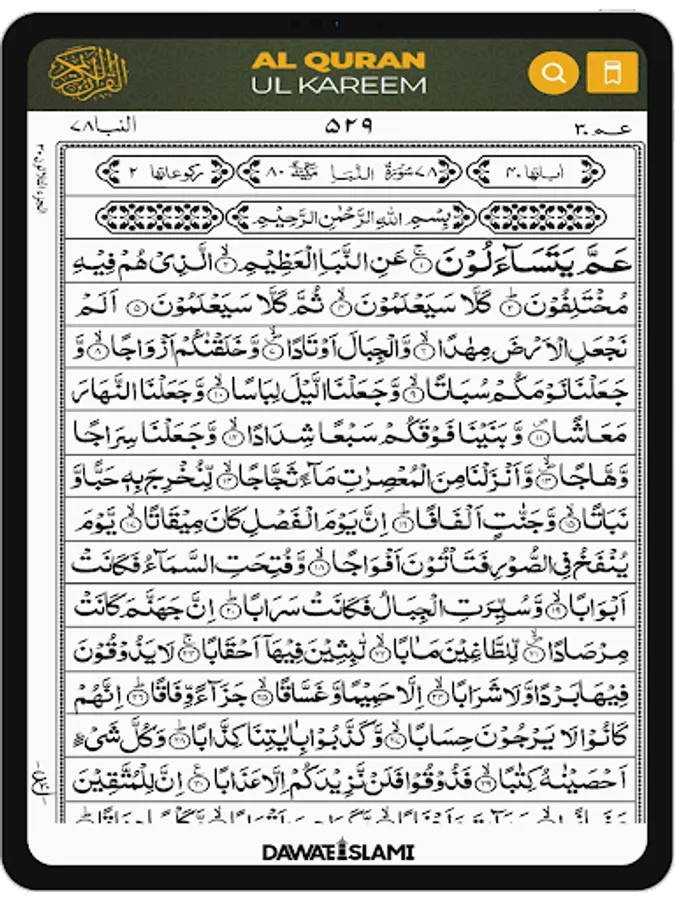 AL QURAN
UL KAREEM
عم ۳۰
۵۲۹
النبا ۷۸
اٰیاتها ۴۰
۷۸ سُوْرَةُ النَّبَاِ مَكِّيَّةٌ ۸۰
ركوعاتها ۲
بِسْمِ اللهِ الرَّحْمٰنِ الرَّحِيْمِ
عَمَّ يَتَسَآءَلُوْنَ ۱ عَنِ النَّبَاِ الْعَظِيْمِ ۲ الَّذِىْ هُمْ فِيْهِ
مُخْتَلِفُوْنَ ۳ كَلَّا سَيَعْلَمُوْنَ ۴ ثُمَّ كَلَّا سَيَعْلَمُوْنَ ۵ اَلَمْ
نَجْعَلِ الْاَرْضَ مِهٰدًا ۶ وَّالْجِبَالَ اَوْتَادًا ۷ وَّخَلَقْنٰكُمْ اَزْوَاجًا ۸ وَّ
جَعَلْنَا نَوْمَكُمْ سُبَاتًا ۹ وَّجَعَلْنَا الَّيْلَ لِبَاسًا ۱۰ وَّجَعَلْنَا النَّهَارَ
مَعَاشًا ۱۱ وَّبَنَيْنَا فَوْقَكُمْ سَبْعًا شِدَادًا ۱۲ وَّجَعَلْنَا سِرَاجًا
وَّهَّاجًا ۱۳ وَّاَنْزَلْنَا مِنَ الْمُعْصِرٰتِ مَآءً ثَجَّاجًا ۱۴ لِّنُخْرِجَ بِهٖ حَبًّا وَّ
نَبَاتًا ۱۵ وَّجَنّٰتٍ اَلْفَافًا ۱۶ اِنَّ يَوْمَ الْفَصْلِ كَانَ مِيْقَاتًا ۱۷ يَّوْمَ
يُنْفَخُ فِى الصُّوْرِ فَتَاْتُوْنَ اَفْوَاجًا ۱۸ وَّفُتِحَتِ السَّمَآءُ فَكَانَتْ
اَبْوَابًا ۱۹ وَّسُيِّرَتِ الْجِبَالُ فَكَانَتْ سَرَابًا ۲۰ اِنَّ جَهَنَّمَ كَانَتْ
مِرْصَادًا ۲۱ لِّلطَّاغِيْنَ مَاٰبًا ۲۲ لّٰبِثِيْنَ فِيْهَاۤ اَحْقَابًا ۲۳ لَا يَذُوْقُوْنَ
فِيْهَا بَرْدًا وَّلَا شَرَابًا ۲۴ اِلَّا حَمِيْمًا وَّغَسَّاقًا ۲۵ جَزَآءً وِّفَاقًا ۲۶ اِنَّهُمْ
كَانُوْا لَا يَرْجُوْنَ حِسَابًا ۲۷ وَّكَذَّبُوْا بِاٰيٰتِنَا كِذَّابًا ۲۸ وَكُلَّ شَىْءٍ
اَحْصَيْنٰهُ كِتٰبًا ۲۹ فَذُوْقُوْا فَلَنْ نَّزِيْدَكُمْ اِلَّا عَذَابًا ۳۰ اِنَّ لِلْمُتَّقِيْنَ
DAWATEISLAMI